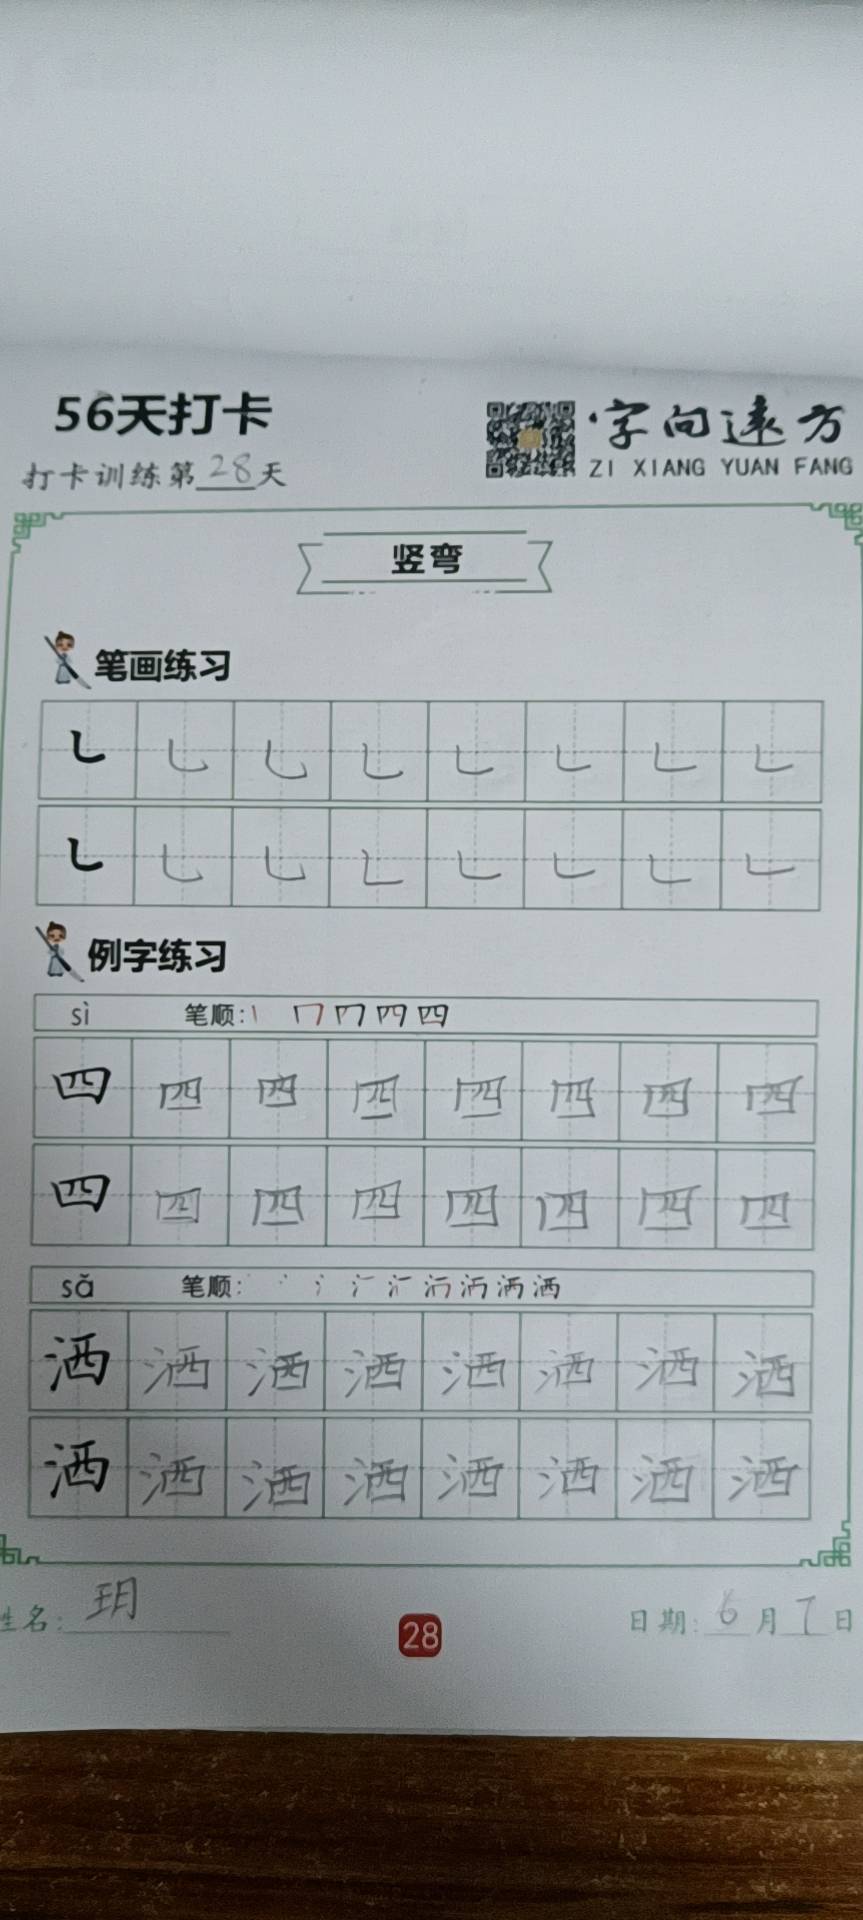 56天打卡
字向远方
打卡训练第28天
ZI XIANG YUAN FANG
竖弯
笔画练习
㇄ ㇄ ㇄ ㇄ ㇄ ㇄ ㇄ ㇄
㇄ ㇄ ㇄ ㇄ ㇄ ㇄ ㇄ ㇄
例字练习
sì 笔顺:
四 四 四 四 四 四 四 四
四 四 四 四 四 四 四 四
sǎ 笔顺:
洒 洒 洒 洒 洒 洒 洒 洒
洒 洒 洒 洒 洒 洒 洒 洒
姓名: 玥
28
日期: 6月7日